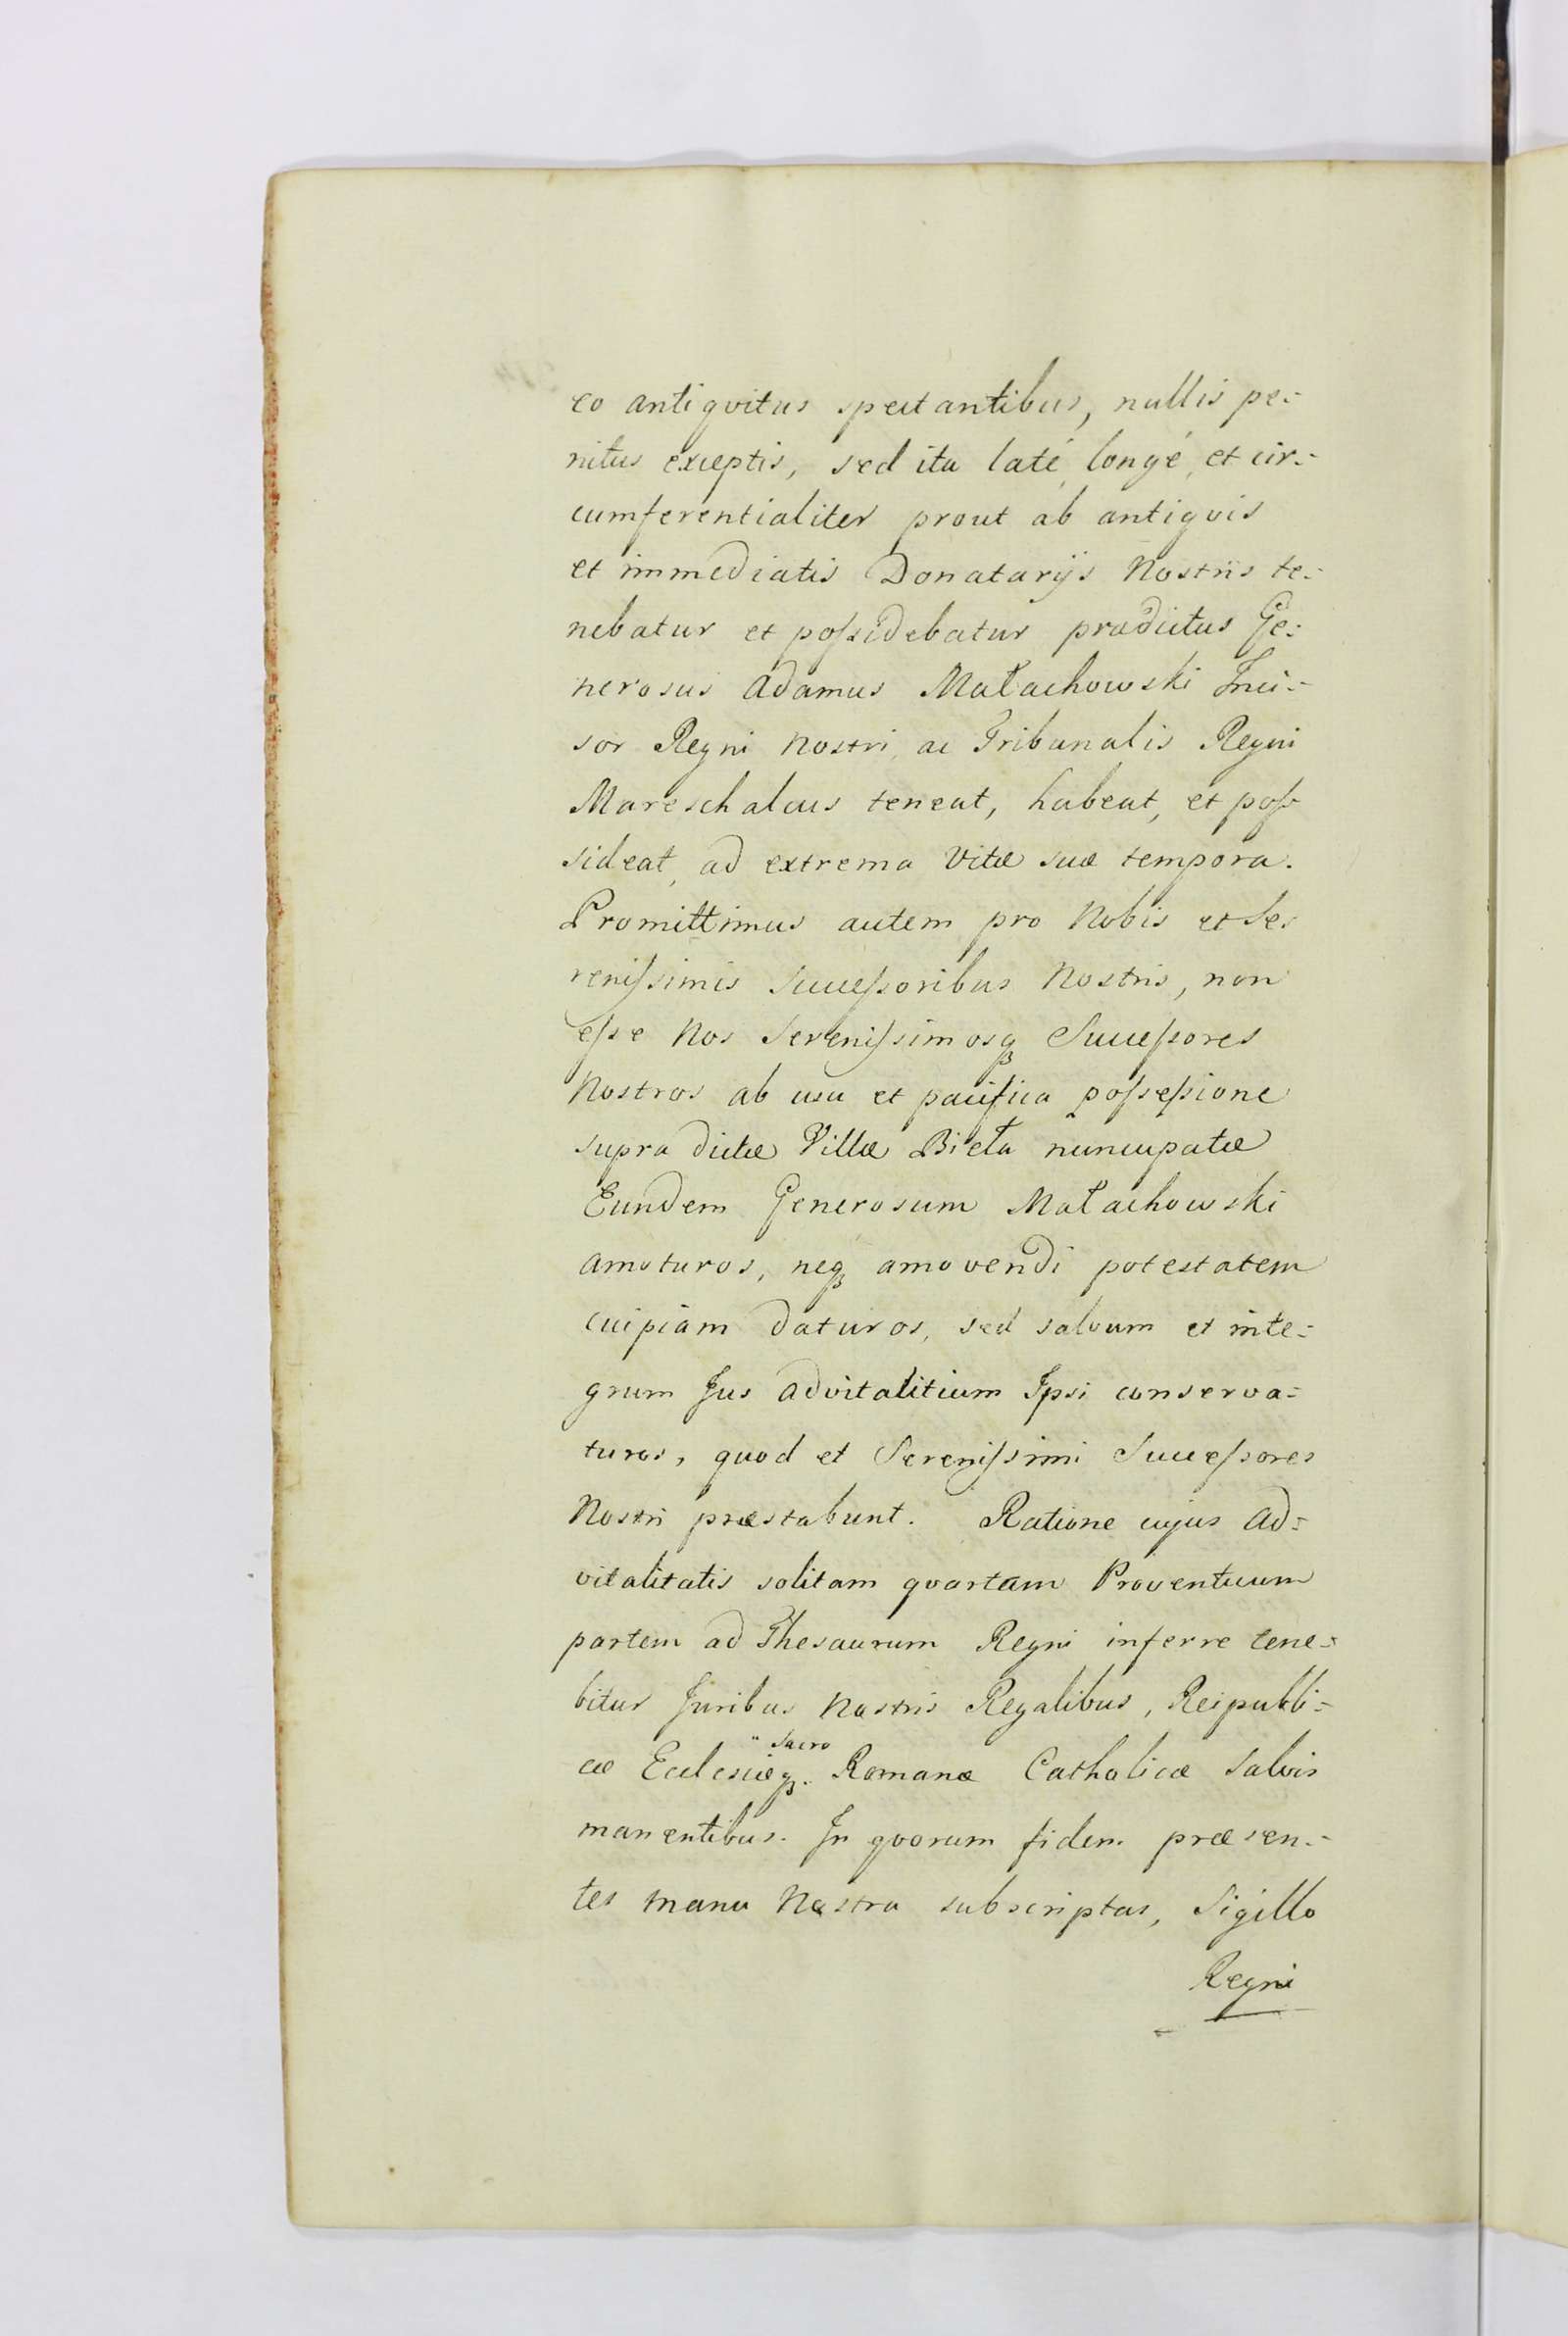 eo antiqvitus spectantibus, nullis pe=
nitus exceptis, sed ita laté, longé, et cir=
cumferentialiter prout ab antiqvis
et immediatis Donatarijs Nostris te=
nebatur et possidebatur prædictus Ge=
nerosus Adamus Małachowski Inci=
sor Regni Nostri, ac Tribunalis Regni
Mareschalcus teneat, habeat, et pos=
sideat, ad extrema Vitæ suæ tempora.
Promittimus autem pro Nobis et Se=
renissimis Successoribus Nostris, non
esse Nos Serenissimosqꝫ Successores
Nostros ab usu et pacifica possessione
supra dictæ Villæ Bieła nuncupatæ
Eundem Generosum Małachowski
amoturos, neqꝫ amovendi potestatem
cuipiam daturos, sed salvum et inte=
grum Jus advitalitium Ipsi conserva=
turos, quod et Serenissimi Successores
Nostri præstabunt. Ratione cujus Ad=
vitalitatis solitam qvartam Proventuum
partem ad Thesaurum Regni inferre tene=
bitur Juribus Nostris Regalibus, Reipubli=
" Sacro
cæ Ecclesiæqꝫ. Romanæ Catholicæ Salvis
manentibus. In qvorum fidem præsen=
tes manu Nostra subscriptas, Sigillo
Regni